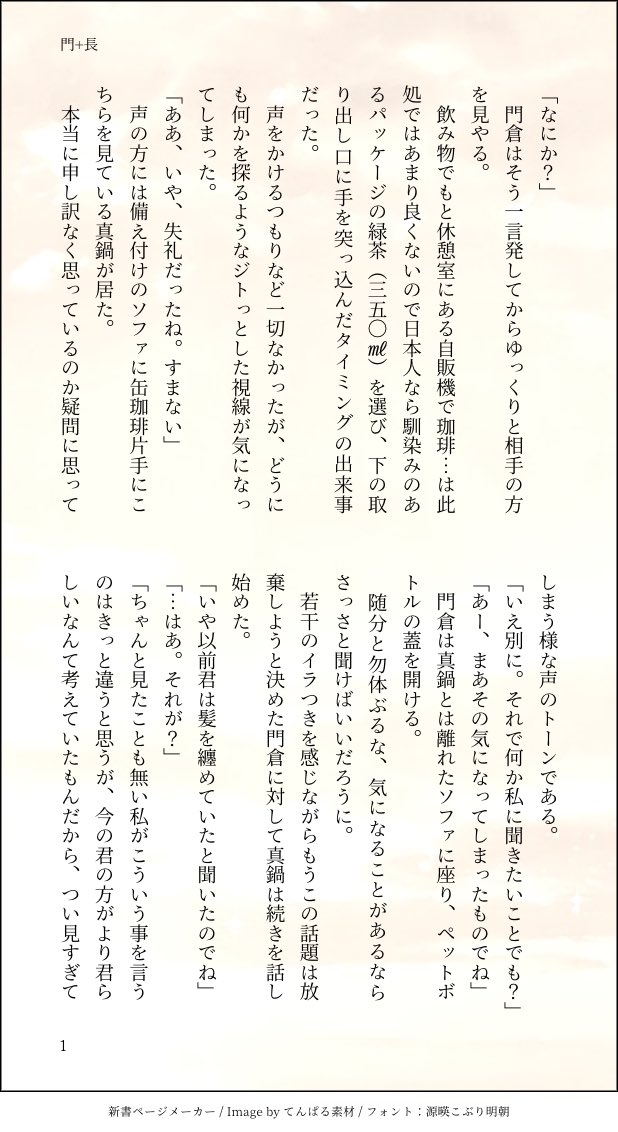 門+長
「なにか？」
　門倉はそう一言発してからゆっくりと相手の方
を見やる。
　飲み物でもと休憩室にある自販機で珈琲…は此
処ではあまり良くないので日本人なら馴染みのあ
るパッケージの緑茶（三五〇㎖）を選び、下の取
り出し口に手を突っ込んだタイミングの出来事
だった。
　声をかけるつもりなど一切なかったが、どうに
も何かを探るようなジトっとした視線が気になっ
てしまった。
「ああ、いや、失礼だったね。すまない」
　声の方には備え付けのソファに缶珈琲片手にこ
ちらを見ている真鍋が居た。
　本当に申し訳なく思っているのか疑問に思って
しまう様な声のトーンである。
「いえ別に。それで何か私に聞きたいことでも？」
「あー、まあその気になってしまったものでね」
　門倉は真鍋とは離れたソファに座り、ペットボ
トルの蓋を開ける。
　随分と勿体ぶるな、気になることがあるなら
さっさと聞けばいいだろうに。
　若干のイラつきを感じながらもうこの話題は放
棄しようと決めた門倉に対して真鍋は続きを話し
始めた。
「いや以前君は髪を纏めていたと聞いたのでね」
「…はあ。それが？」
「ちゃんと見たことも無い私がこういう事を言う
のはきっと違うと思うが、今の君の方がより君ら
しいなんて考えていたもんだから、つい見すぎて
1
新書ページメーカー / Image by てんぱる素材 / フォント：源暎こぶり明朝